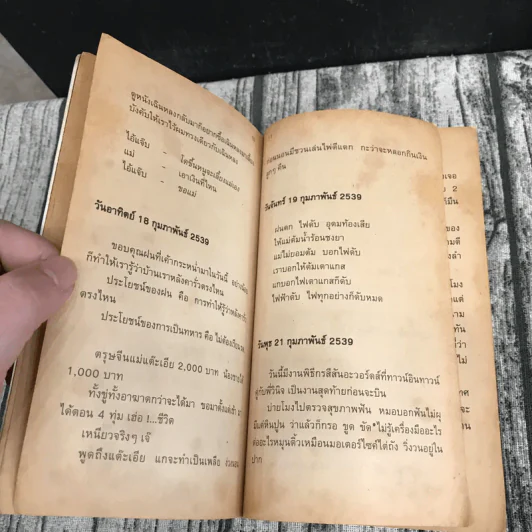 ดูหนังเฉินหลงกลับมาก็อยาก
บังคับให้เราไว้ผมทรงเดียวกับเฉินหลง
ไอ้แจ๊บ -
แม่ - เอาเงินที่ไหน
ไอ้แจ๊บ - ขอแม่
วันอาทิตย์ 18 กุมภาพันธ์ 2539
ขอบคุณฝนที่เค้ากระหน่ำมาในวันนี้ อย่างน้อย
ก็ทำให้เรารู้ว่าบ้านเราหลังคารั่วตรงไหน
ประโยชน์ของฝน คือ การทำให้รู้ว่าหลังคารั่ว
ตรงไหน
ประโยชน์ของการเป็นทหาร คือ
ตรุษจีนแม่แต๊ะเอีย 2,000 บาท
1,000 บาท
ทั้งขู่ทั้งอาฆาตกว่าจะได้มา ขอมาตั้งแต่เช้า
ได้ตอน 4 ทุ่ม เฮ่อ !...ชีวิต
เหนียวจริงๆ เจ๊
พูดถึงแต๊ะเอีย แกจะทำเป็นเพลีย
ก่อนนอนมีชวนเล่นไพ่ดีแดก กะว่าจะหลอกกินเงิน
วันจันทร์ 19 กุมภาพันธ์ 2539
ฝนตก ไฟดับ อุดมท้องเสีย
ให้แม่ต้มน้ำร้อนชงยา
แม่ไม่ยอมต้ม บอกไฟดับ
เราบอกให้ต้มเตาแกส
แกบอกไฟเตาแกสก็ดับ
ไฟฟ้าดับ ไฟทุกอย่างก็ดับหมด
วันพุธ 21 กุมภาพันธ์ 2539
วันนี้มีงานพิธีกรสีสันอะวอร์ดส์ที่ทาวน์อินทาวน์
คู่กับพี่วินิจ เป็นงานสุดท้ายก่อนจะบิน
บ่ายโมงไปตรวจสุขภาพฟัน หมอบอกฟันไม่ผุ
มีแต่หินปูน ว่าแล้วก็กรอ ขูด ขัด ไม่รู้เครื่องมืออะไร
ต่ออะไรหมุนติ้วเหมือนมอเตอร์ไซค์ไต่ถัง วิ่งวนอยู่ใน
ปาก